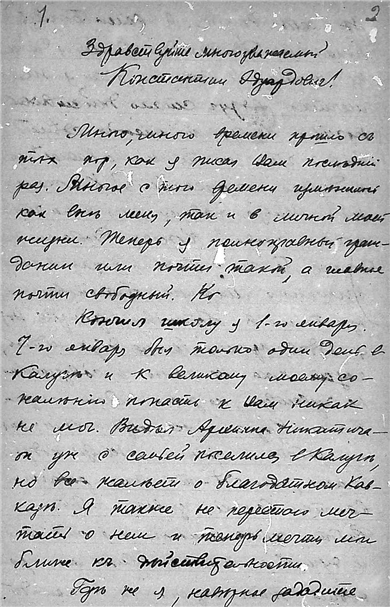 1.
2
Здравствуйте многоуважаемый
Константин Эдуардович!
Много, много времени прошло съ
тех пор, как я писал Вам последний
раз. Многое с того времени изменилось
как вне меня, так и в личной моей
жизни. Теперь я полноправный граж-
данин или почти такой, а главное
почти свободный. Ко
Кончил школу я 1-го января.
7-го января был только один день в
Калуге и к великому моему со-
жалению попасть к Вам никак
не мог. Видел Никитича
он уж с семьей поселился в Калуге,
но все жалеет о благодатном Кав-
казе. Я также не перестаю меч-
тать о нем и теперь мечты мои
ближе къ действительности.
не я, наверное зададите